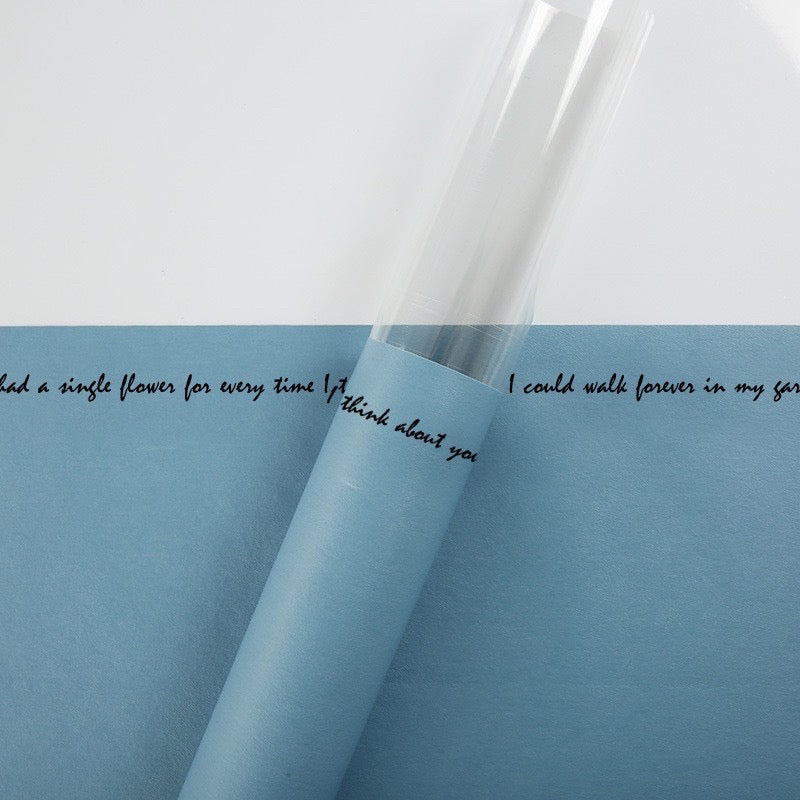 had a single flower for every time I, t
think about you
I could walk forever in my gar